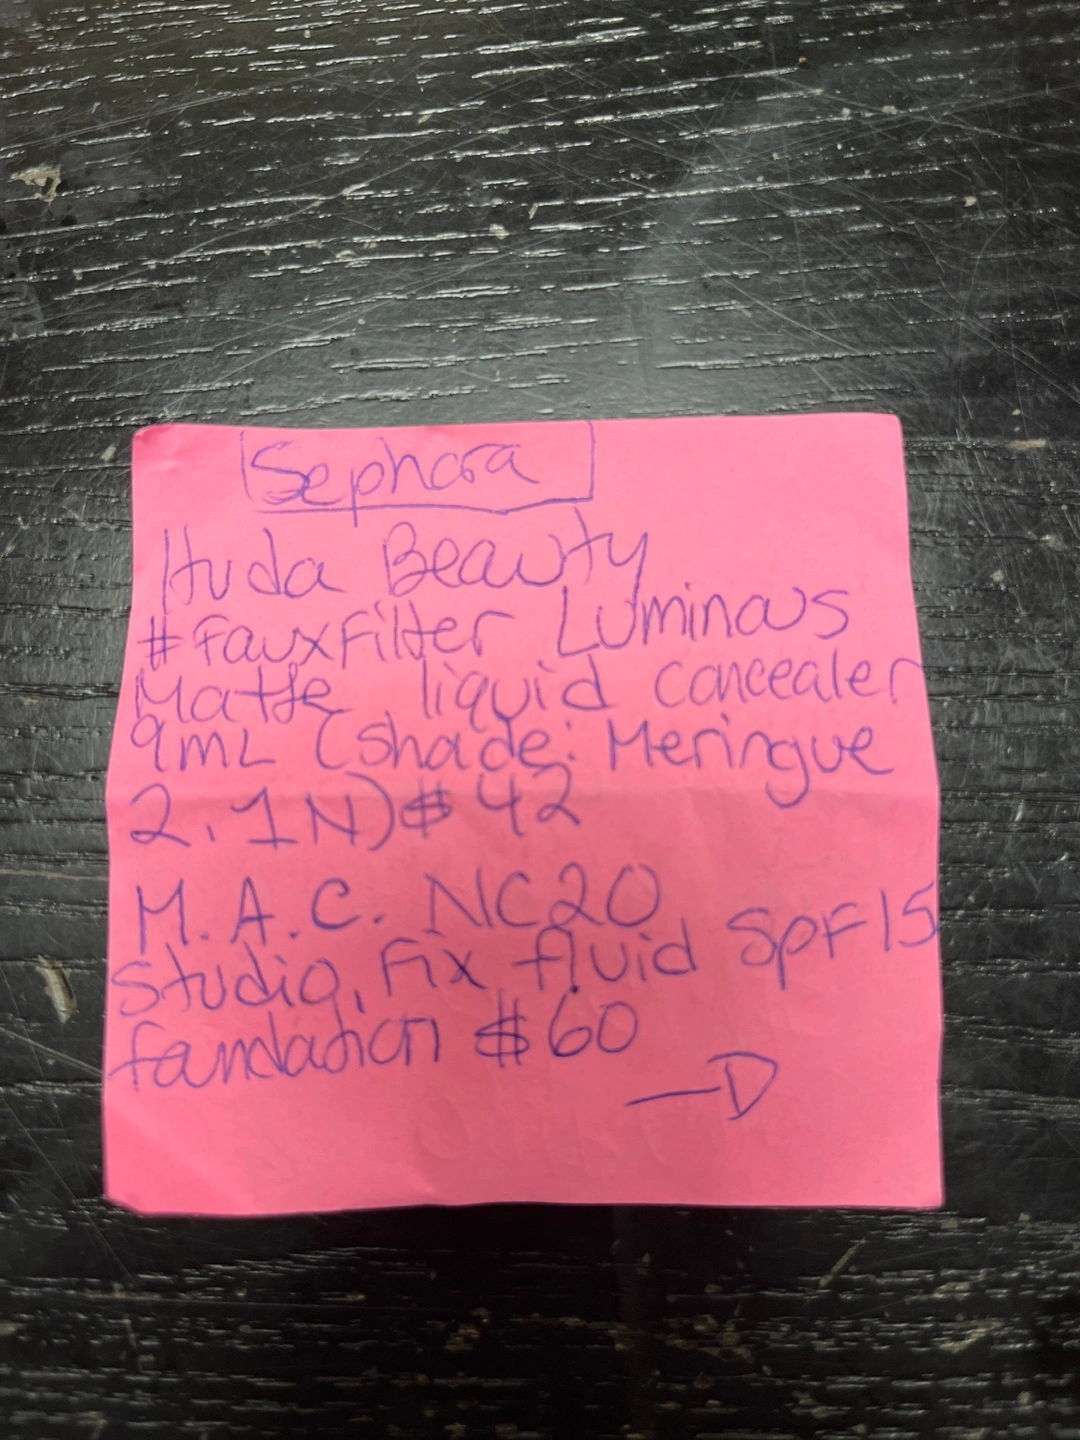 Sephora
Huda Beauty
#FauxFilter Luminous
Matte liquid concealer
9mL (shade: Meringue
2.1N) $42
M.A.C. NC20
Studio, Fix fluid SPF15
foundation $60